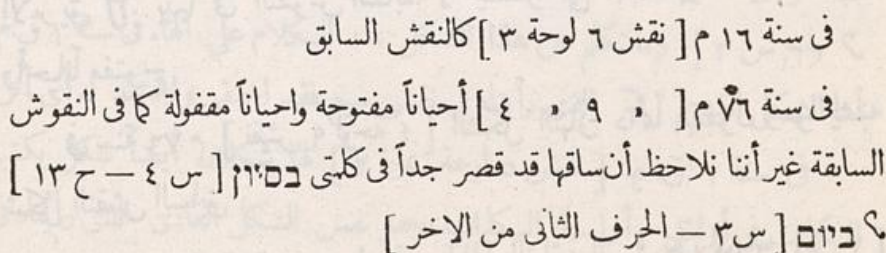 فى سنة ١٦ م [ نقش ٦ لوحة ٣ ] كالنقش السابق
فى سنة ٧٦ م [ « ٩ « ٤ ] أحياناً مفتوحة واحياناً مقفولة كما فى النقوش
السابقة غير أننا نلاحظ أن ساقها قد قصر جداً فى كلمتى בסיון [ س ٤ — ح ١٣ ]
؟ ביום [ س ٣ — الحرف الثانى من الاخر ]